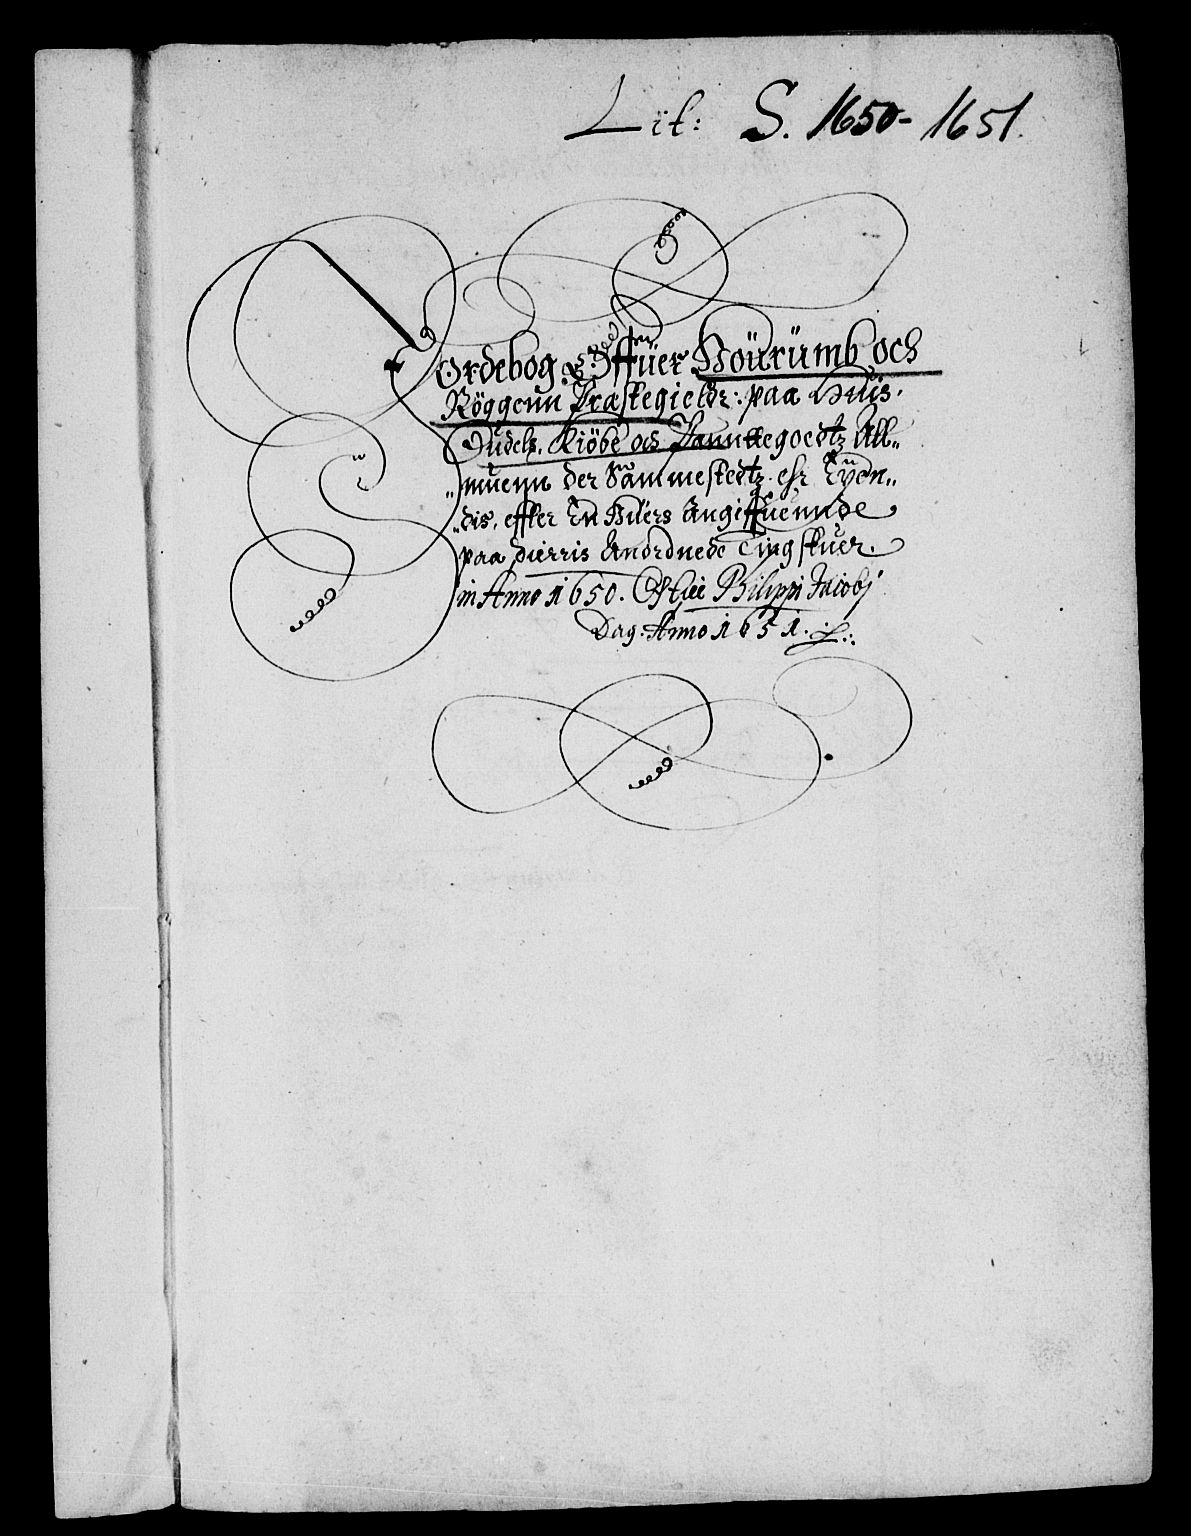 Lit: S. 1650-1651.
Jordebog Offuer Hourumb och
Röggenn Præstegieldr: paa Huis.
Oudels, Kiöbe och Panttegoedtz All„
„muenn der Sammestedtz. ehr Eÿen„
„dis, effter En Huers Angiffuennde
paa dierris Anordnede Tingstuer.
in Anno 1650. Philippi Jacobj
Dag: Anno 1651.